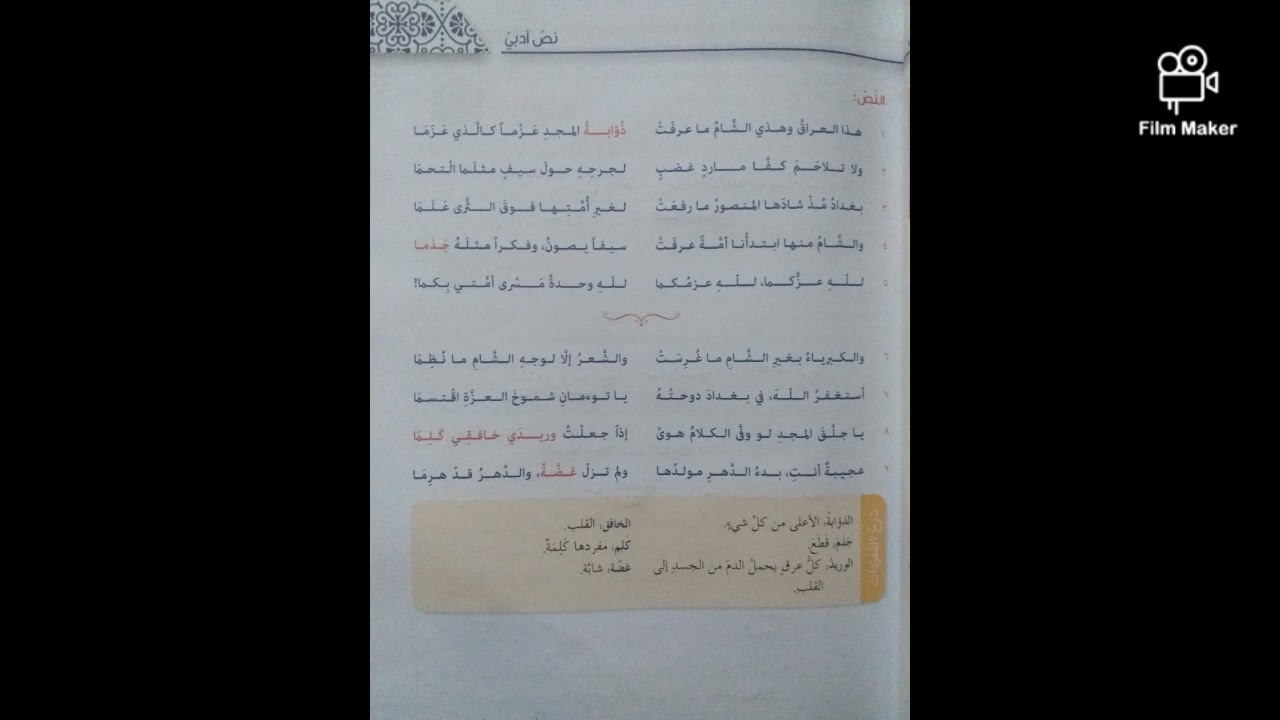 نصّ أدبيّ
Film Maker
النّصّ:
١ هذا العراقُ وهذي الشَّامُ ما عرفَتْ ذُؤابـةُ المجدِ عَزْماً كالَّذي عَزَمَا
٢ ولا تلاحَمَ كفَّا ماردٍ غضبٍ لجرحِهِ حولَ سيفٍ مثلَما الْتحمَا
٣ بغدادُ مُذْ شادَها المنصورُ ما رفعَتْ لغيرِ أُمَّتِها فوقَ الثُّرى عَلَمَا
٤ والشَّامُ منها ابتدأْنا أمَّةً عرفَتْ سيفاً يصونُ، وفكراً مثلَهُ جَذَما
٥ للّهِ عزُّكما، للّهِ عزمُكما للّهِ وحدةُ مَسْرى أمَّتي بِكما!
٦ والكبرياءُ بغيرِ الشَّامِ ما غُرِسَتْ والشَّعرُ إلَّا لوجهِ الشَّامِ ما نُظِمَا
٧ أستغفرُ اللّهَ، في بغدادَ دوحتُهُ يا توءمانِ شموخَ العزَّةِ اقْتسمَا
٨ يا جلَّقَ المجدِ لو وفَّى الكلامُ هوىً إذاً جعلْتُ وريدَي خافقِي كَلِمَا
٩ عجيبةٌ أنتِ، بدءُ الدَّهرِ مولدُها ولم تزلْ غضَّةً، والدَّهرُ قدْ هرِمَا
شرحُ المُفرداتِ
الذؤابةُ: الأعلى من كلّ شيءٍ. الخافق: القلب.
جَذمَ: قَطَعَ. كَلِم: مفردها كَلِمَةٌ.
الوريدُ: كلُّ عرقٍ يحملُ الدمَ من الجسدِ إلى غضّة: شابَّة.
القلبِ.